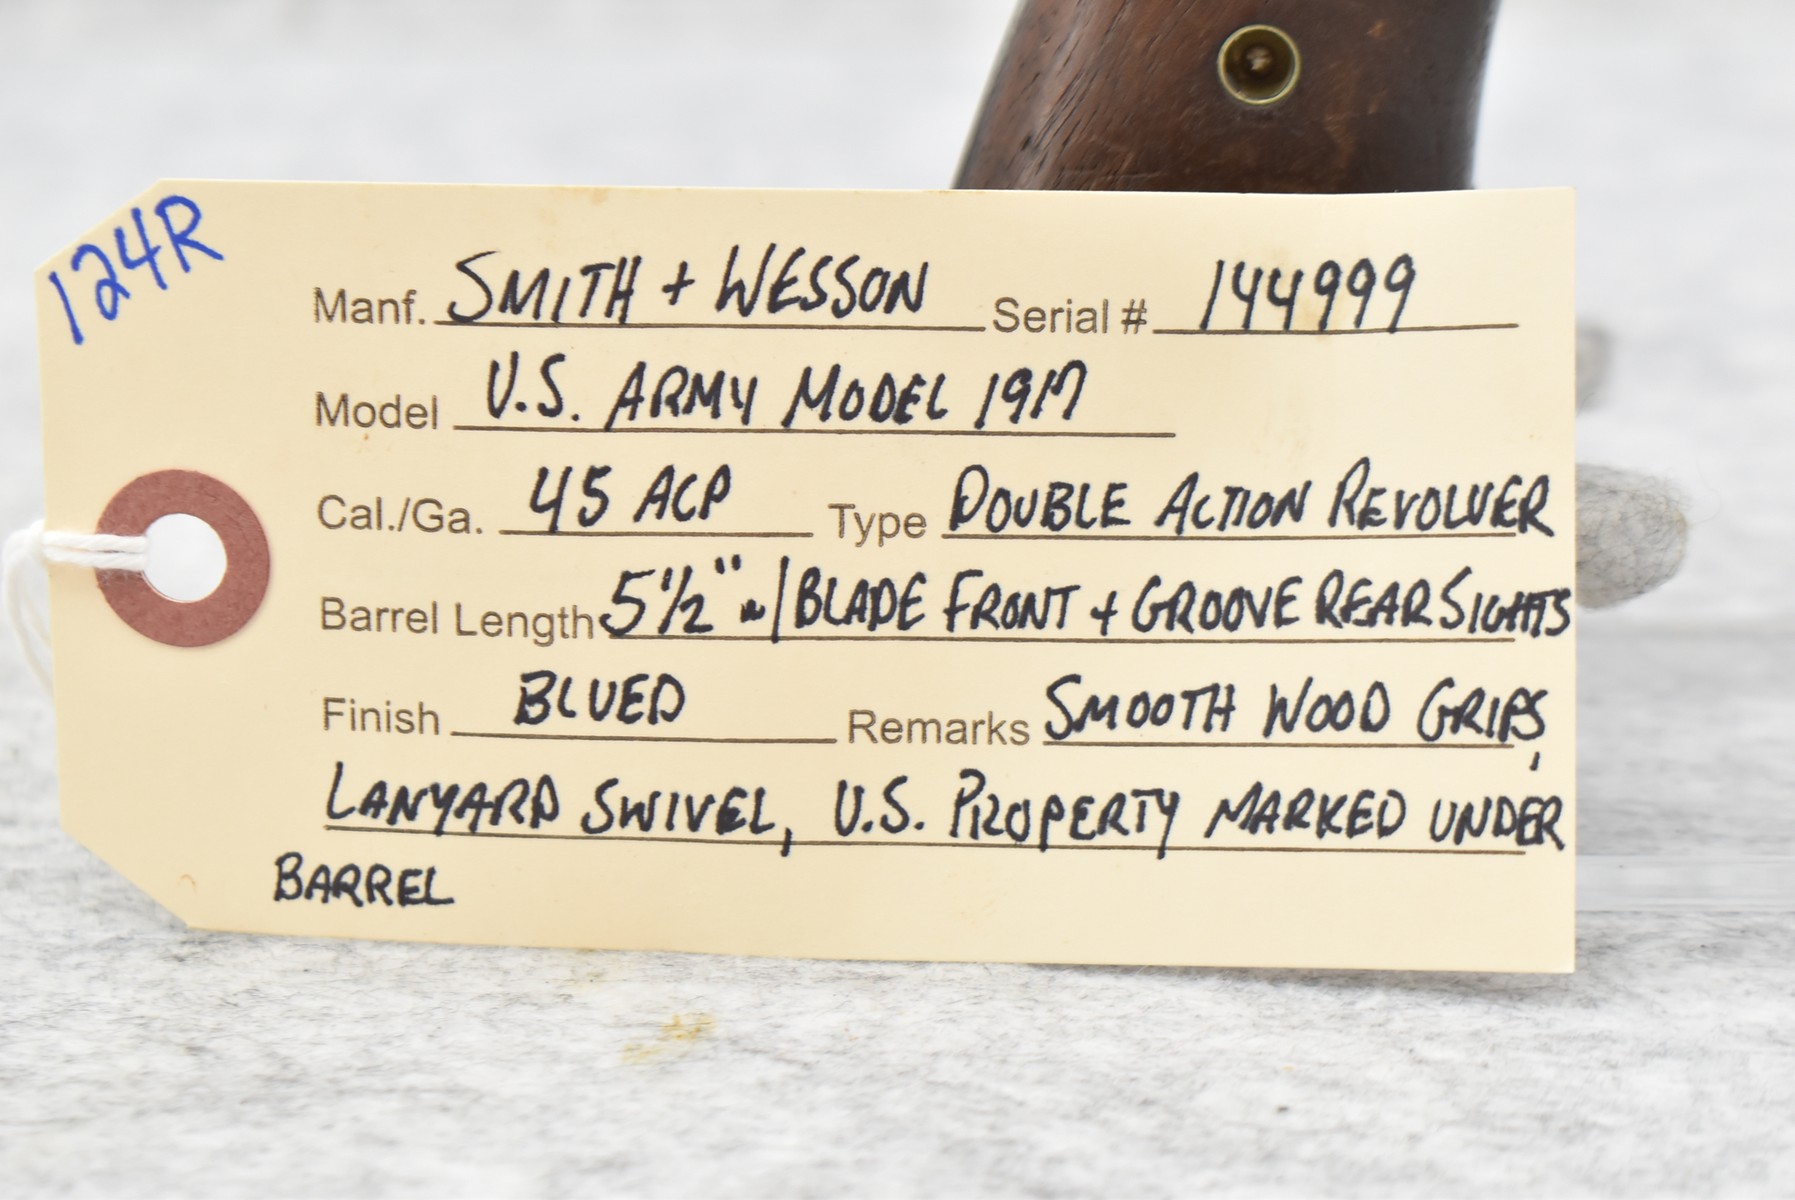 124R
Manf. SMITH + WESSON Serial # 144999
Model U.S. ARMY MODEL 1917
Cal./Ga. 45 ACP Type DOUBLE ACTION REVOLVER
Barrel Length 5 1/2" w/ BLADE FRONT + GROOVE REAR SIGHTS
Finish BLUED Remarks SMOOTH WOOD GRIPS,
LANYARD SWIVEL, U.S. PROPERTY MARKED UNDER
BARREL